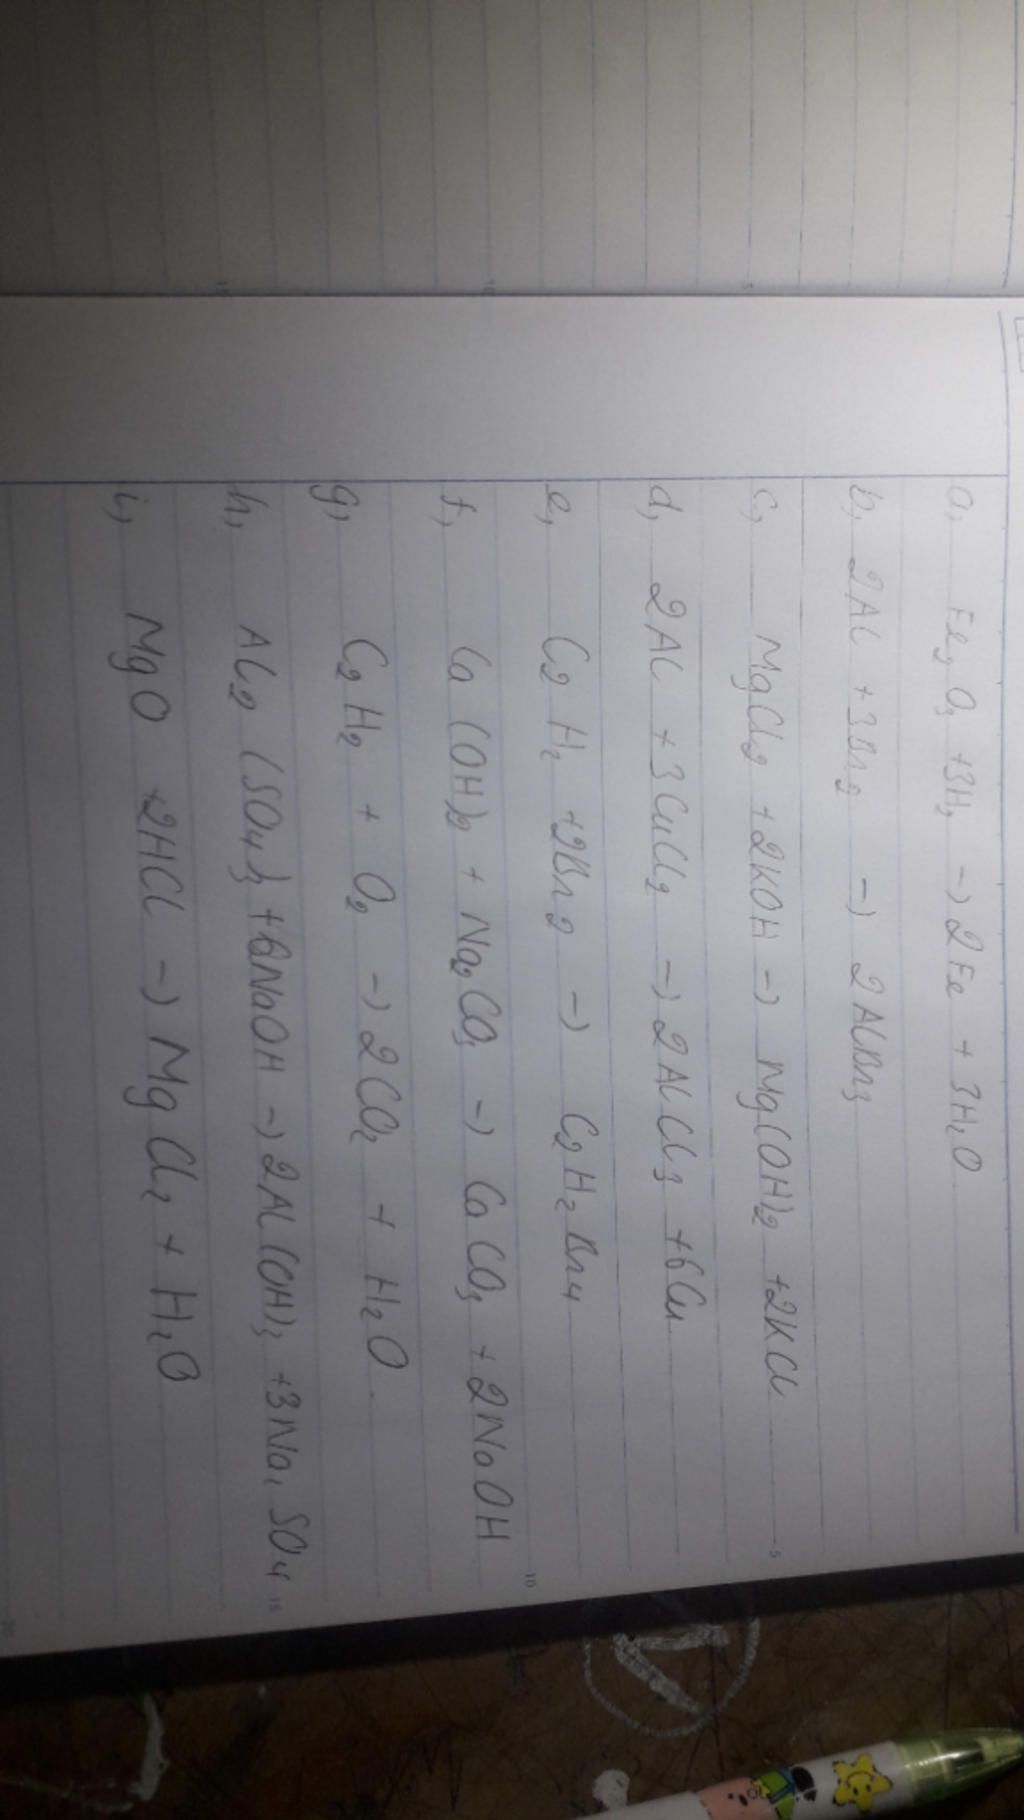 a, Fe2O3 +3H2 -> 2Fe + 3H2O
b, 2Al +3Br2 -> 2AlBr3
c, MgCl2 +2KOH -> Mg(OH)2 +2KCl
d, 2Al +3CuCl2 -> 2AlCl3 +6Cu
e, C2H2 +2Br2 -> C2H2Br4
f, Ca(OH)2 + Na2CO3 -> CaCO3 + 2NaOH
g, C2H2 + O2 -> 2CO2 + H2O
h, Al2(SO4)3 +6NaOH -> 2Al(OH)3 +3Na2SO4
i, MgO +2HCl -> MgCl2 + H2O